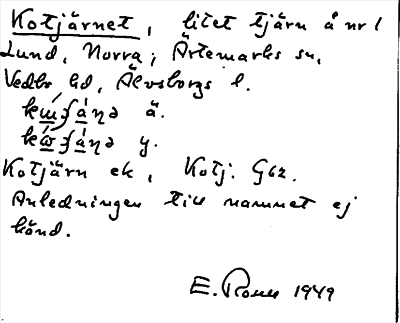 Kotjärnet, litet tjärn å nr 1
Lund, Norra; Ärtemarks sn,
Vedbo hd, Älvsborgs l.
ä.
y.
Kotjärn ek, Kotj. G62.
Anledningen till namnet ej
känd.
E. Rosell 1949